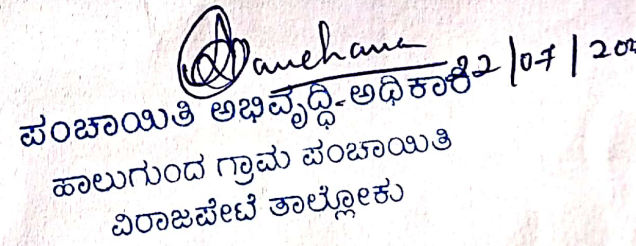 22/07/202
ಪಂಚಾಯಿತಿ ಅಭಿವೃದ್ಧಿ-ಅಧಿಕಾರಿ
ಹಾಲುಗುಂದ ಗ್ರಾಮ ಪಂಚಾಯಿತಿ
ವಿರಾಜಪೇಟೆ ತಾಲ್ಲೋಕು